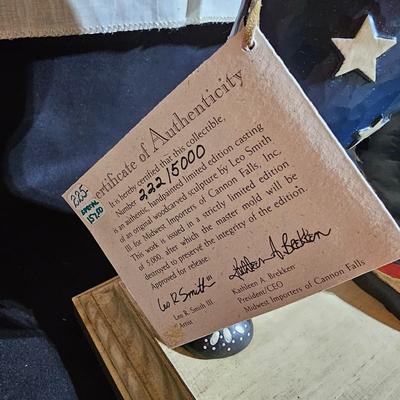 Certificate of Authenticity
It is hereby certified that this collectible,
Number 222/5000
is an authentic, handpainted limited edition casting
of an original woodcarved sculpture by Leo Smith
III for Midwest Importers of Cannon Falls, Inc.
This work is issued in a strictly limited edition
of 5,000, after which the master mold will be
destroyed to preserve the integrity of the edition.
Approved for release:
Leo R Smith III
Leo R. Smith III
Artist
Kathleen A Brekken
Kathleen A. Brekken
President/CEO
Midwest Importers of Cannon Falls
225-
157.50